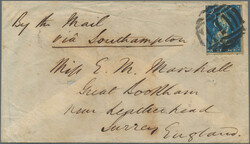 By the Mail
via Southampton
Miss E. M. Marshall
Great Bookham
near Leatherhead
Surrey
England.